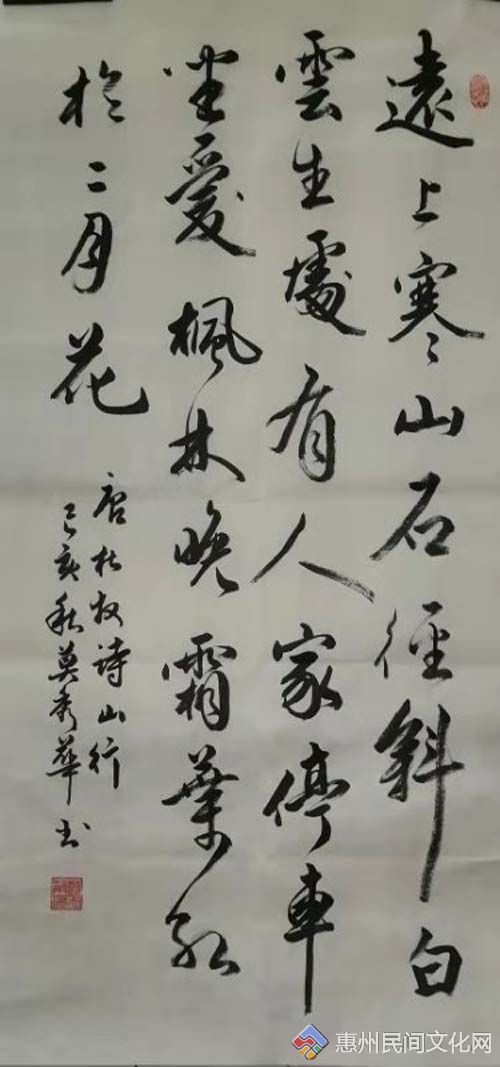 遠上寒山石徑斜白
雲生處有人家停車
坐愛楓林晚霜葉紅
於二月花
唐杜牧诗山行
己亥秋莫秀華书
惠州民间文化网